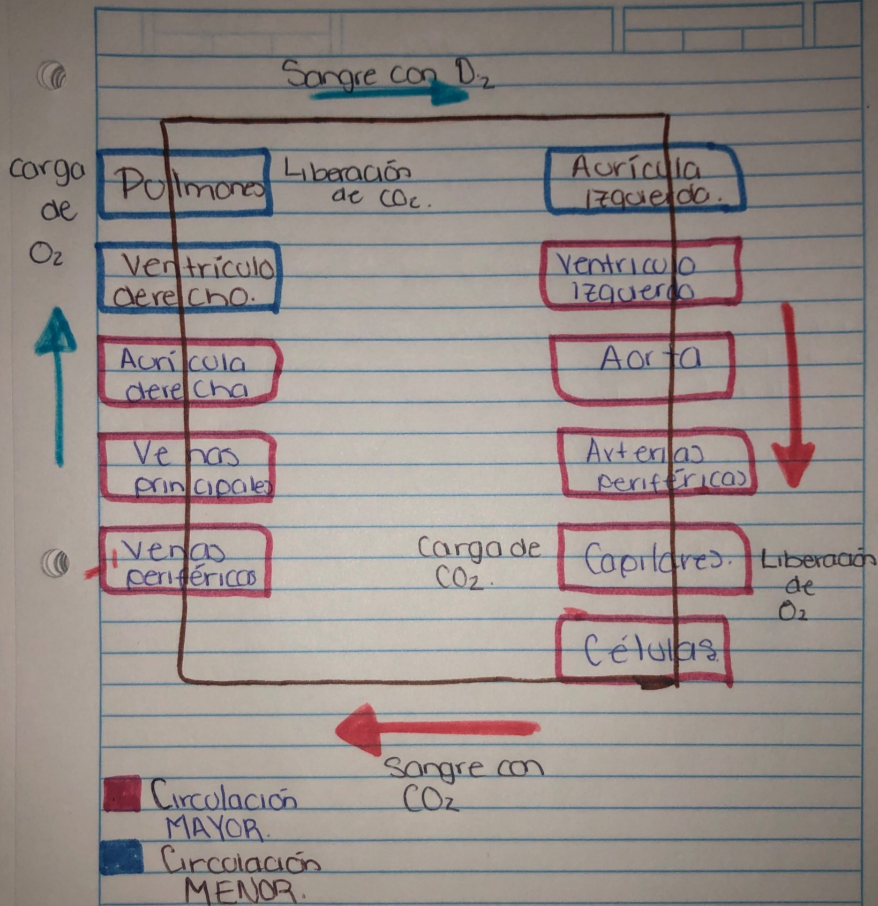 Sangre con O2
carga
de
O2
Pulmones
Liberación
de CO2.
Aurícula
izquierda.
Ventrículo
derecho.
Ventriculo
izquierdo
Aurícula
derecha
Aorta
Venas
principales
Arterias
periféricas
Venas
periféricas
Carga de
CO2.
Capilares.
Liberación
de
O2
Células
Sangre con
CO2
Circulación
MAYOR.
Circulación
MENOR.